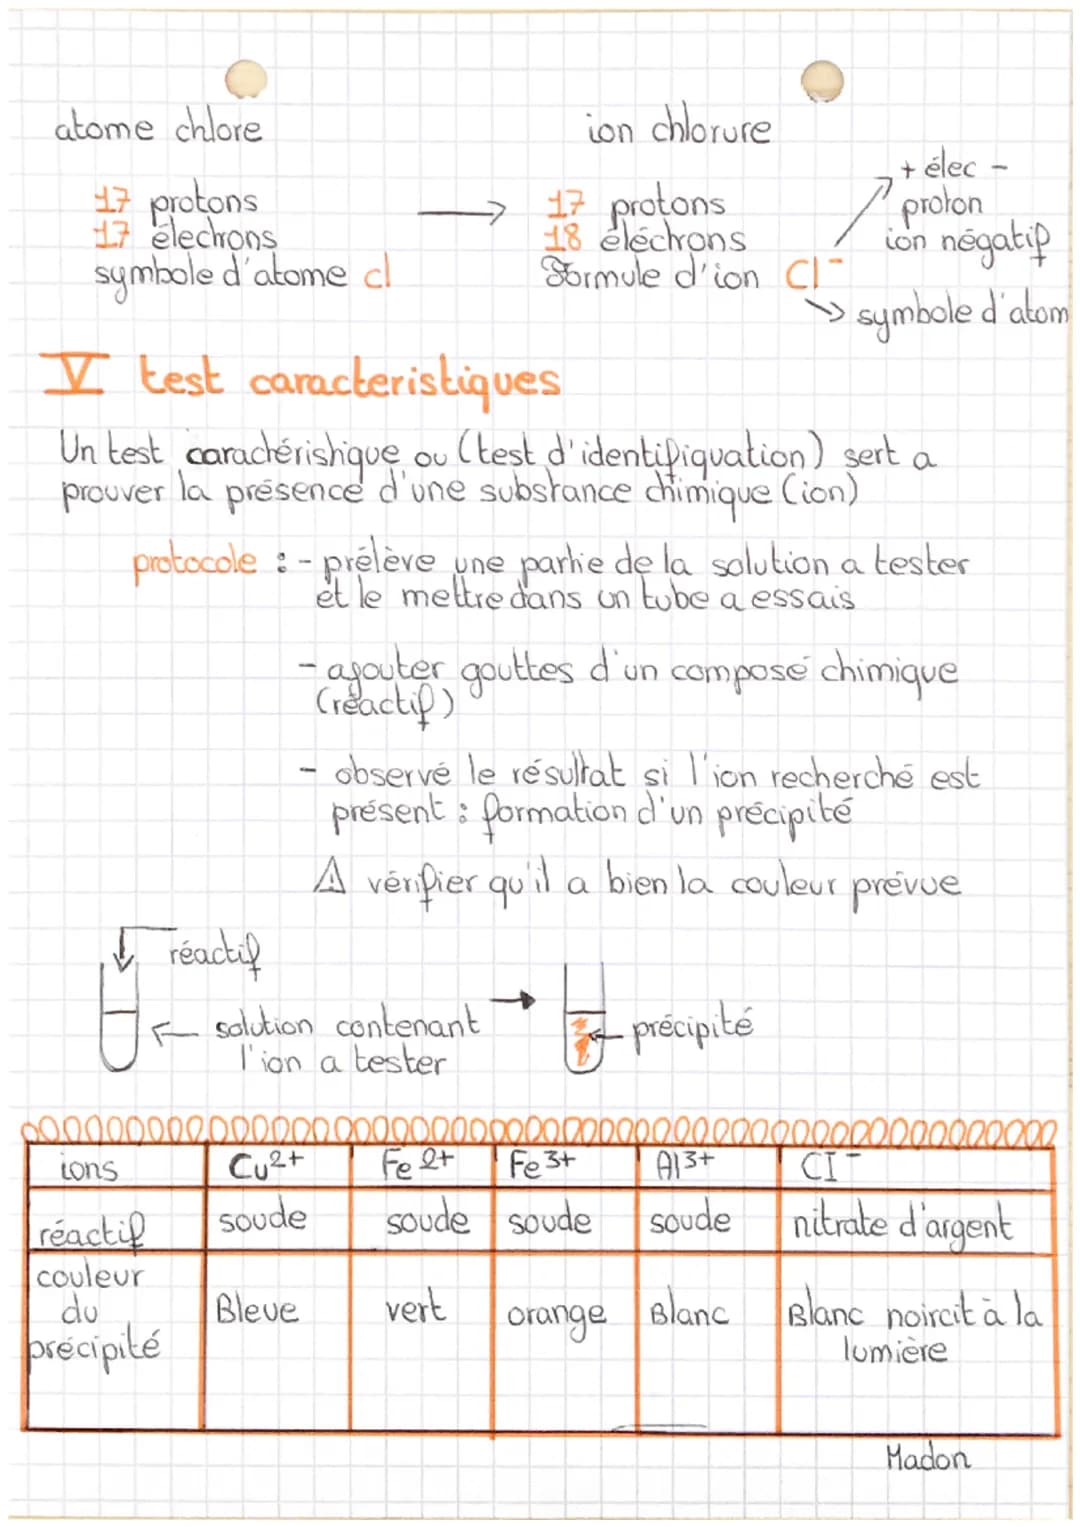 atome chlore
ion chlorure
17 protons
17 électrons
symbole d'atome cl
17 protons
18 éléctrons
Formule d'ion Cl⁻
+ élec -
proton
ion négatif
symbole d'atom
V test caracteristiques
Un test caractéristique ou (test d'identifiquation) sert a
prouver la présence d'une substance chimique (ion)
protocole : - prélève une partie de la solution a tester
et le mettre dans un tube a essais
- ajouter gouttes d'un composé chimique
(réactif)
- observé le résultat si l'ion recherché est
présent : formation d'un précipité
⚠ vérifier qu'il a bien la couleur prévue
réactif
solution contenant
l'ion a tester
précipité
ions Cu2+ Fe 2+ Fe 3+ Al 3+ CI⁻
réactif soude soude soude soude nitrate d'argent
couleur
du
précipité
Bleue vert orange Blanc Blanc noircit à la
lumière
Madon